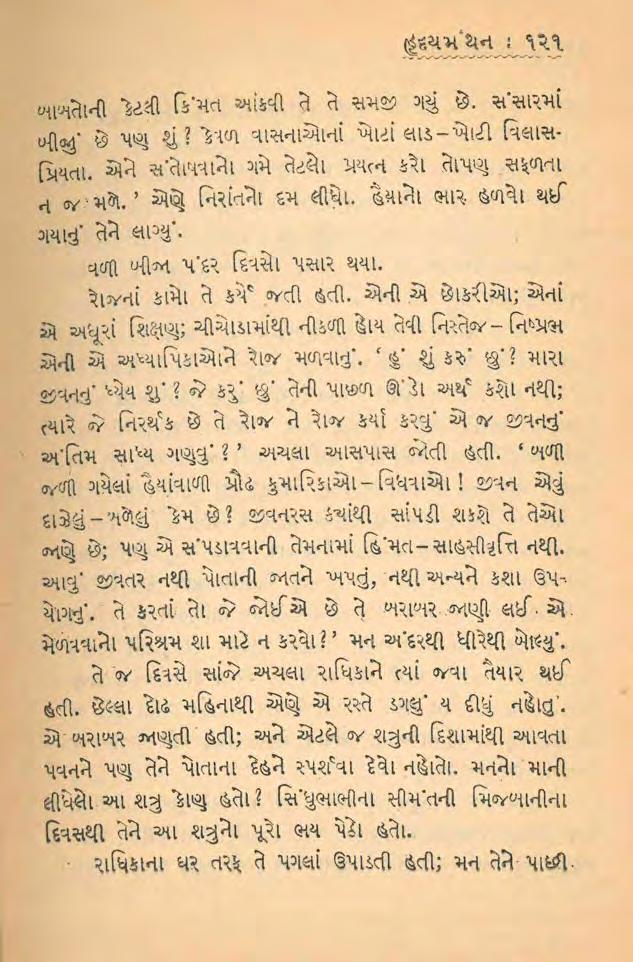 હૃદયમંથન : ૧૨૧
બાબતોની કેટલી કિંમત આંકવી તે તે સમજી ગયું છે. સંસારમાં
બીજું છે પણ શું? કેવળ વાસનાઓનાં ખોટાં લાડ–ખોટી વિલાસ-
પ્રિયતા. એને સંતોષવાનો ગમે તેટલો પ્રયત્ન કરો તોપણ સફળતા
ન જ મળે.’ એણે નિરાંતનો દમ લીધો. હૈયાનો ભાર હળવો થઈ
ગયાનું તેને લાગ્યું.
વળી બીજા પંદર દિવસો પસાર થયા.
રોજનાં કામો તે કર્યે જતી હતી. એની એ છોકરીઓ; એનાં
એ અધૂરાં શિક્ષણ; ચીચોડામાંથી નીકળી હોય તેવી નિસ્તેજ–નિષ્પ્રભ
એની એ અધ્યાપિકાઓને રોજ મળવાનું. ‘હું શું કરું છું? મારા
જીવનનું ધ્યેય શું? જે કરું છું તેની પાછળ ઊંડો અર્થ કશો નથી;
ત્યારે જે નિરર્થક છે તે રોજ ને રોજ કર્યા કરવું એ જ જીવનનું
અંતિમ સાધ્ય ગણવું?’ અચલા આસપાસ જોતી હતી. ‘બળી
જળી ગયેલાં હૈયાંવાળી પ્રૌઢ કુમારિકાઓ–વિધવાઓ! જીવન એવું
દાઝેલું–બળેલું કેમ છે? જીવનરસ ક્યાંથી સાંપડી શકશે તે તેઓ
જાણે છે; પણ એ સંપડાવવાની તેમનામાં હિંમત–સાહસીવૃત્તિ નથી.
આવું જીવતર નથી પોતાની જાતને ખપતું, નથી અન્યને કશા ઉપ-
યોગનું. તે કરતાં તો જે જોઈએ છે તે બરાબર જાણી લઈ એ
મેળવવાનો પરિશ્રમ શા માટે ન કરવો?’ મન અંદરથી ધીરેથી બોલ્યું.
તે જ દિવસે સાંજે અચલા રાધિકાને ત્યાં જવા તૈયાર થઈ
હતી. છેલ્લા દોઢ મહિનાથી એણે એ રસ્તે ડગલું ય દીધું નહોતું.
એ બરાબર જાણતી હતી; અને એટલે જ શત્રુની દિશામાંથી આવતા
પવનને પણ તેને પોતાના દેહને સ્પર્શવા દેવો નહોતો. મનનો માની
લીધેલો આ શત્રુ કોણ હતો? સિંધુભાભીના સીમંતની મિજબાનીના
દિવસથી તેને આ શત્રુનો પૂરો ભય પેઠો હતો.
રાધિકાના ઘર તરફ તે પગલાં ઉપાડતી હતી; મન તેને પાછી